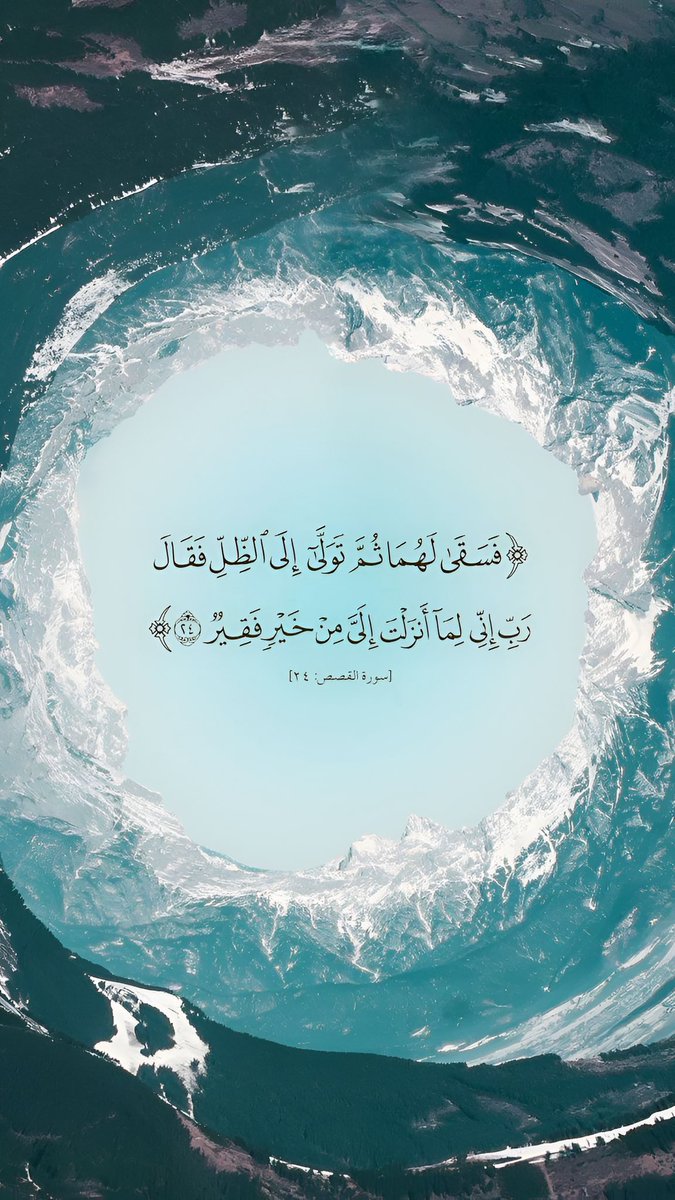 ﴿فَسَقَىٰ لَهُمَا ثُمَّ تَوَلَّىٰٓ إِلَى ٱلظِّلِّ فَقَالَ
رَبِّ إِنِّي لِمَآ أَنزَلۡتَ إِلَيَّ مِنۡ خَيۡرٖ فَقِيرٞ ٢٤﴾
[سورة القصص: ٢٤]